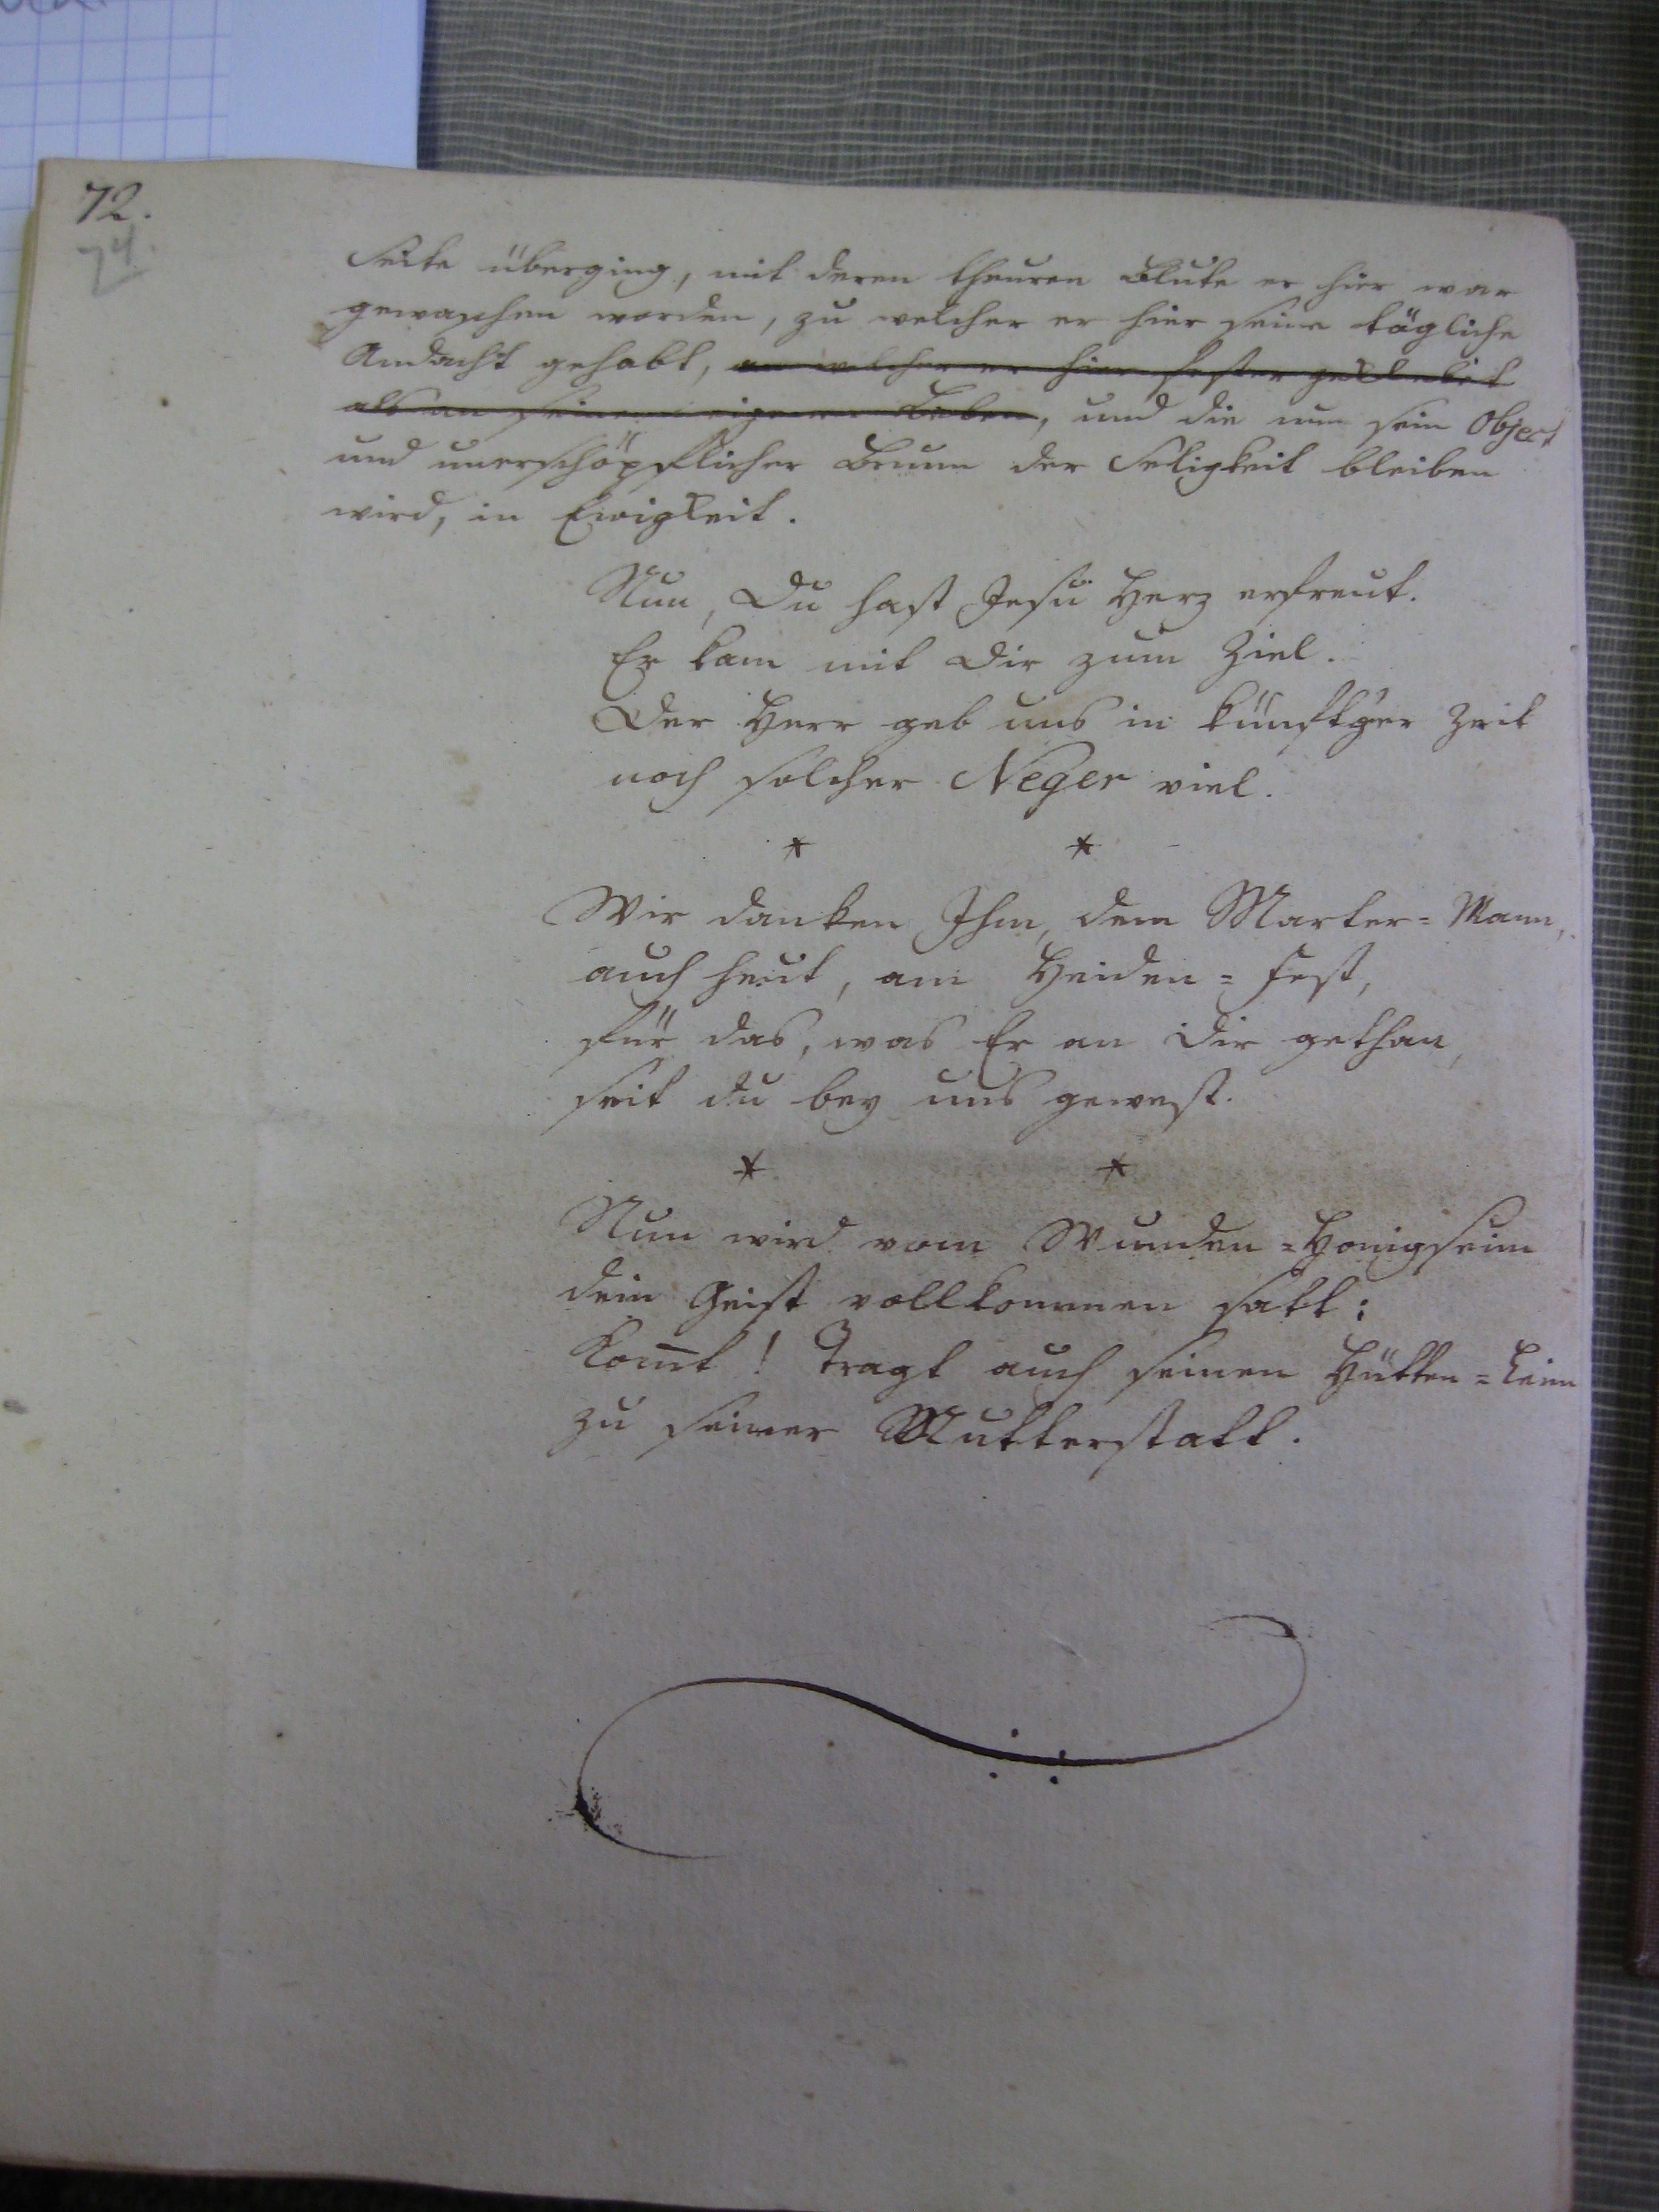 72.
74.
Seite überging, mit deren theuren Blute er hier war
gewaschen worden, zu welcher er hier seine tägliche
Andacht gehabt, an welcher er hier fester geklebet
als an seinem eigenen Leben, und die nun sein Object
und unerschöpflicher Brunn der Seligkeit bleiben
wird, in Ewigkeit.
Nun, Du hast Jesu Herz erfreut.
Er kam mit Dir zum Ziel.
Der Herr geb uns in künft'ger Zeit
noch solcher Neger viel.
* *
Wir danken Ihm, dem Marter=Mann,
auch heut, am Heiden=Fest,
für das, was Er an Dir gethan,
seit du bey uns gewest.
* *
Nun wird vom Wunden=Honigseim
dein Geist vollkommen satt:
Kom̅t! Tragt auch seinen Hütten=Leim
zu seiner Mutterstatt.